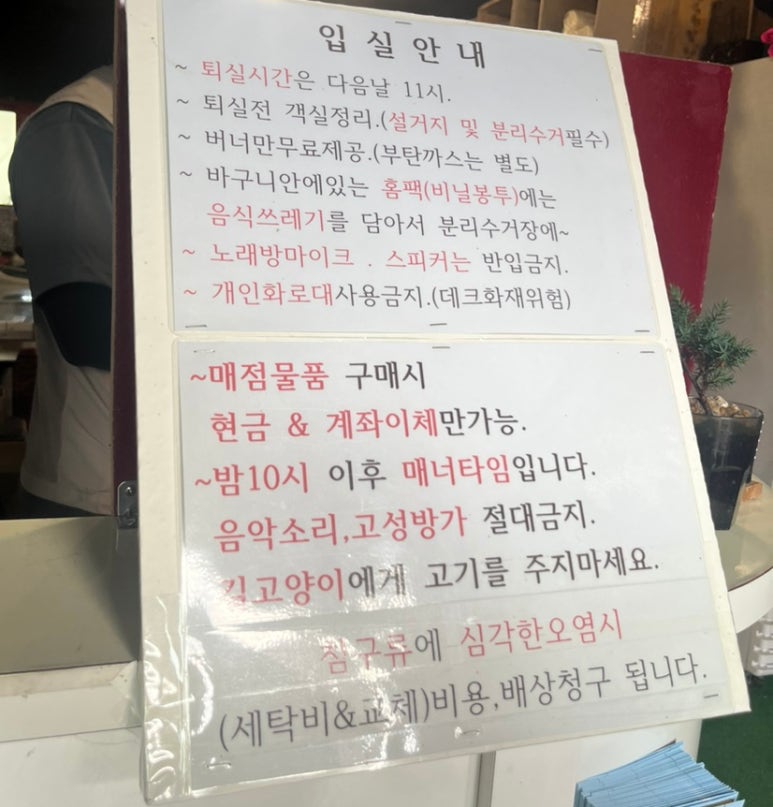 입실안내
~ 퇴실시간은 다음날 11시.
~ 퇴실전 객실정리.(설거지 및 분리수거필수)
~ 버너만무료제공.(부탄까스는 별도)
~ 바구니안에있는 홈팩(비닐봉투)에는
음식쓰레기를 담아서 분리수거장에~
~ 노래방마이크 . 스피커는 반입금지.
~ 개인화로대사용금지.(데크화재위험)
~매점물품 구매시
현금 & 계좌이체만가능.
~밤10시 이후 매너타임입니다.
음악소리,고성방가 절대금지.
길고양이에게 고기를 주지마세요.
침구류에 심각한오염시
(세탁비&교체)비용,배상청구 됩니다.